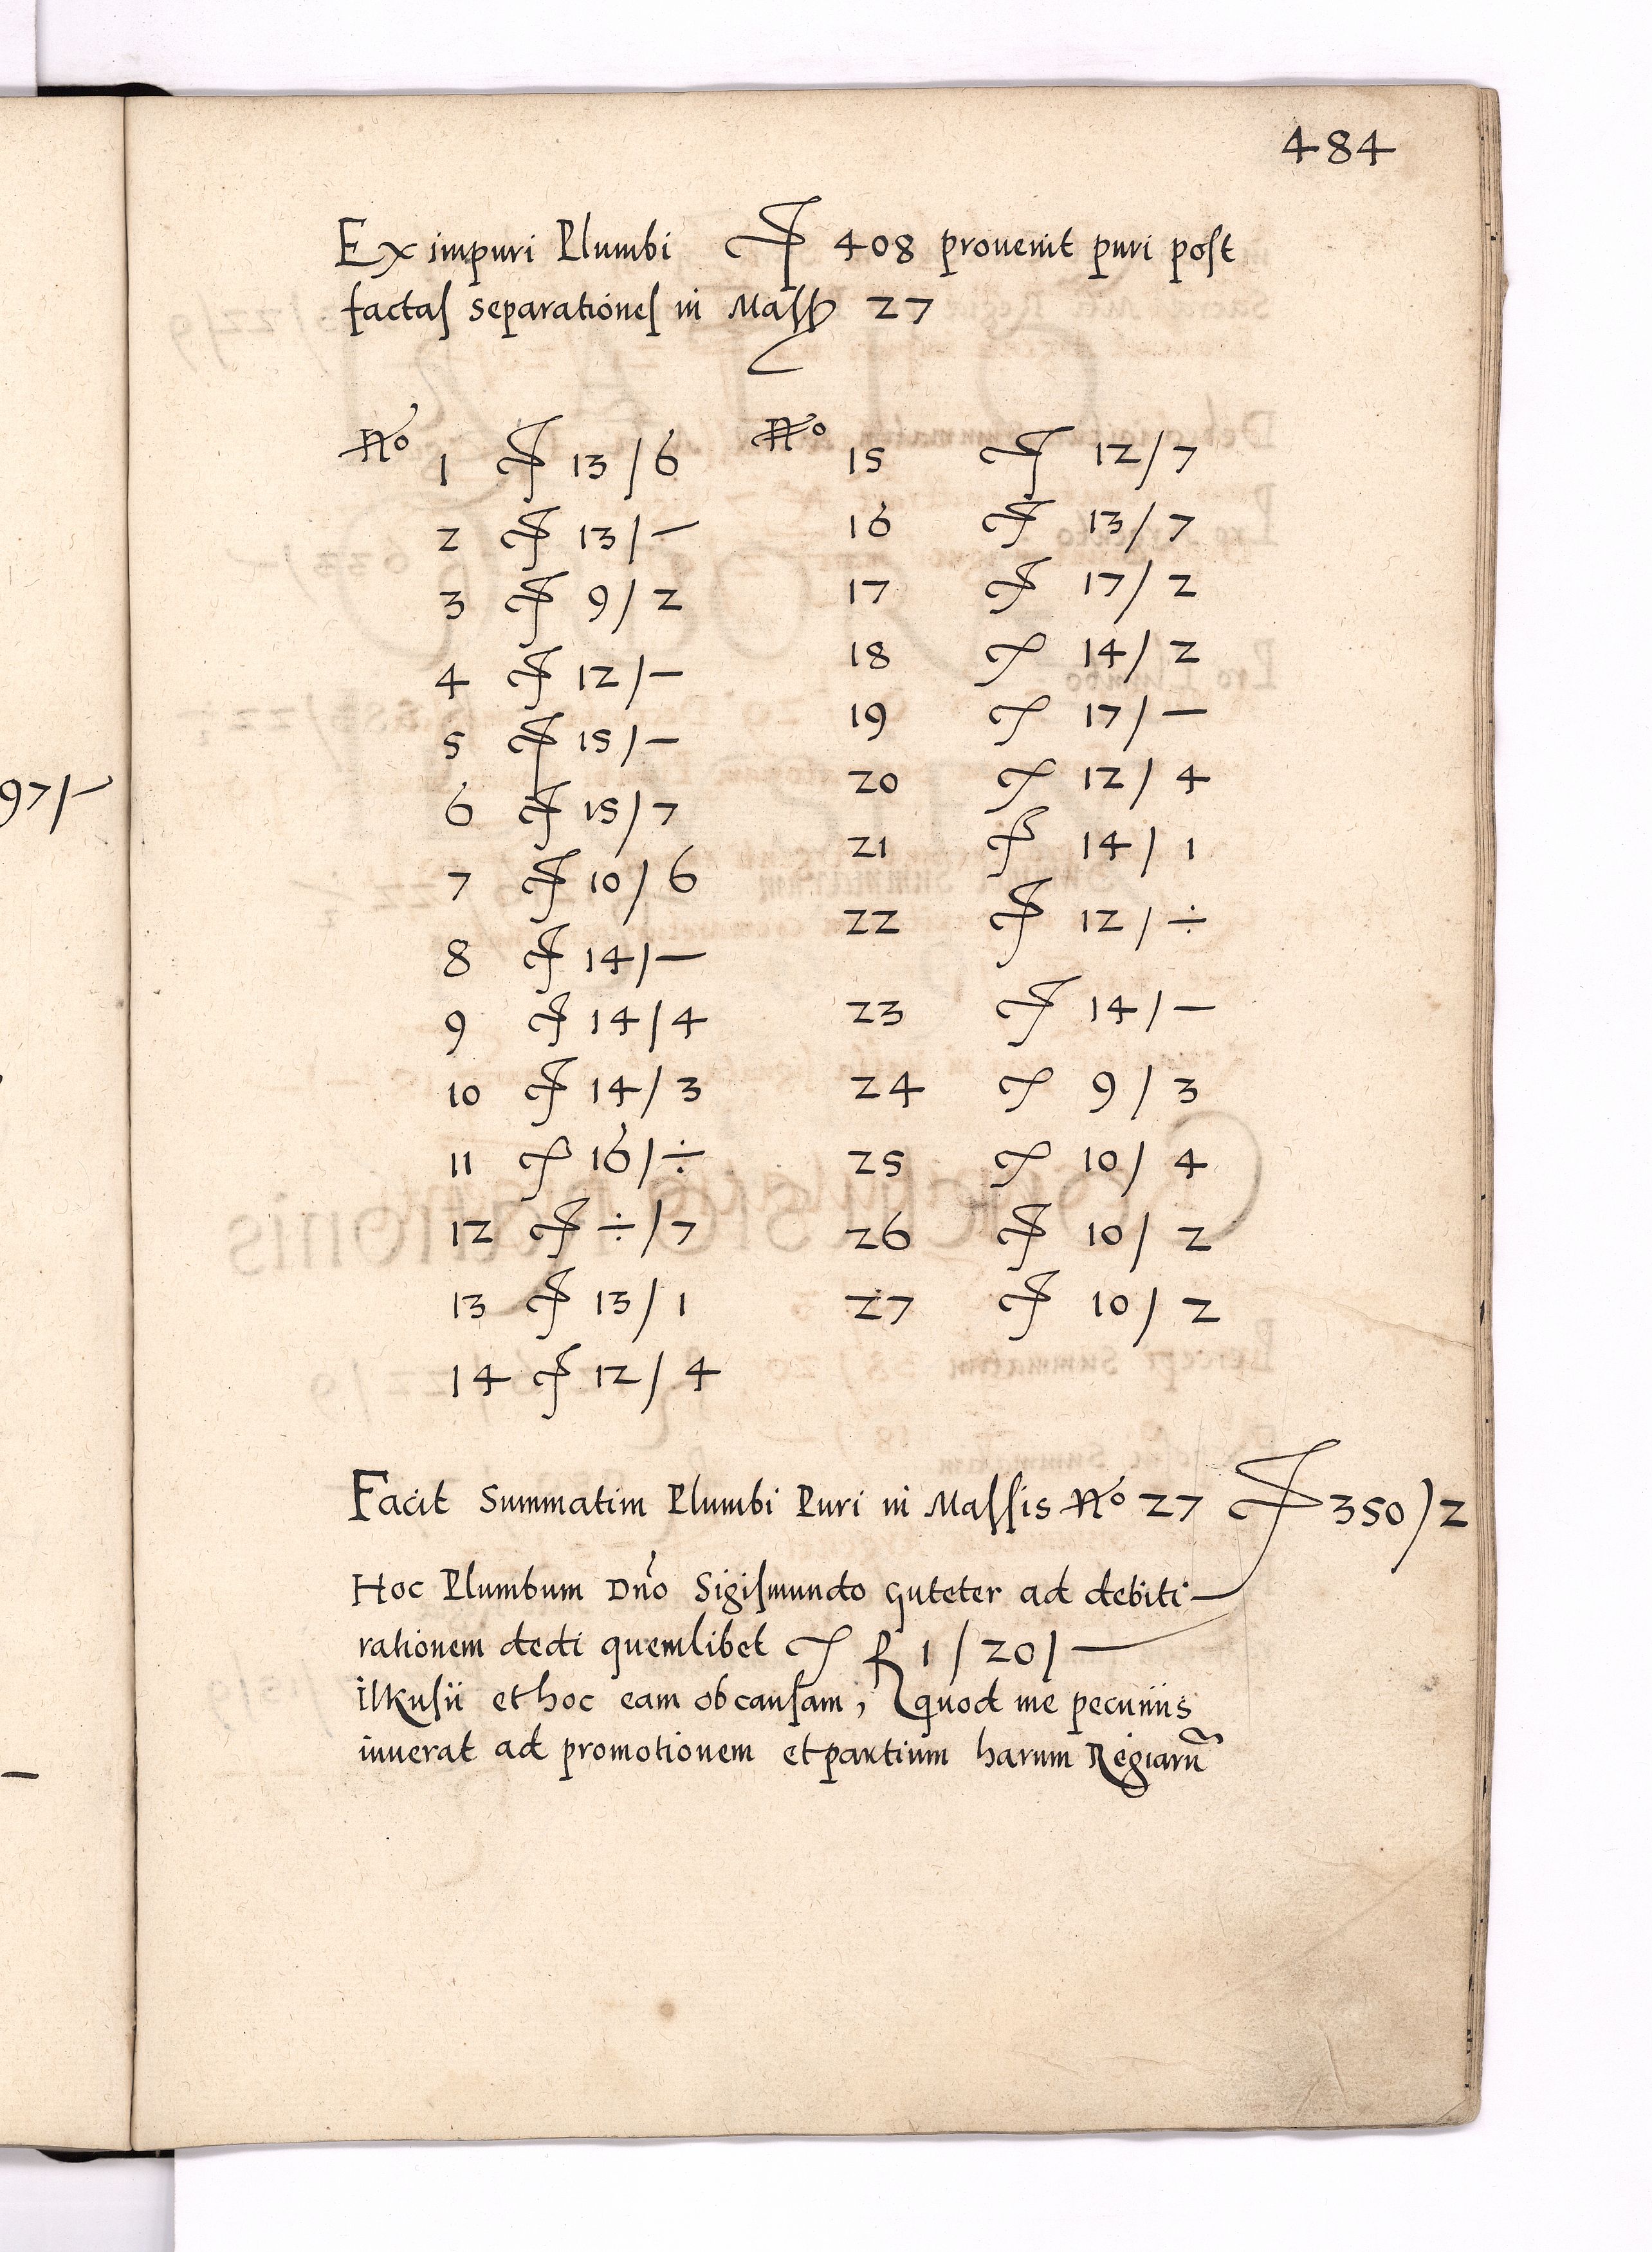 97/-
484
Ex impuri Plumbi ₰ 408 prouenit puri post
factas separationes in Mass 27
No 1 ₰ 13/6
2 ₰ 13/-
3 ₰ 9/2
4 ₰ 12/-
5 ₰ 15/-
6 ₰ 15/7
7 ₰ 10/6
8 ₰ 14/-
9 ₰ 14/4
10 ₰ 14/3
11 ₰ 16/÷
12 ₰ ÷/7
13 ₰ 13/1
14 ₰ 12/4
No 15 ₰ 12/7
16 ₰ 13/7
17 ₰ 17/2
18 ₰ 14/2
19 ₰ 17/-
20 ₰ 12/4
21 ₰ 14/1
22 ₰ 12/÷
23 ₰ 14/-
24 ₰ 9/3
25 ₰ 10/4
26 ₰ 10/2
27 ₰ 10/2
Facit Summatim Plumbi Puri in Massis No 27 ₰ 350/2
Hoc Plumbum Dno Sigismundo Guteter ad debiti
rationem dedi quemlibet ₰ f 1/20/-
ilkusii et hoc eam ob causam, quod me pecuniis
iuuerat ad promotionem et partium harum Regiaru